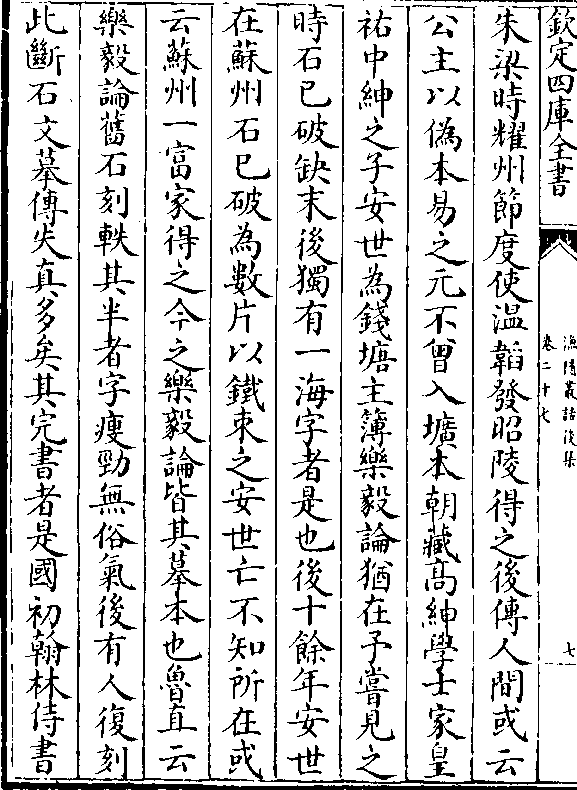 欽定四庫全書
漁隱叢話後集
卷二十七
七
朱梁時耀州節度使温韜發昭陵得之後傳人間或云
公主以偽本易之元不曾入壙本朝藏高紳學士家皇
祐中紳之子安世為錢塘主簿樂毅論猶在予嘗見之
時石已破缺末後獨有一海字者是也後十餘年安世
在蘇州石已破為數片以鐵束之安世亡不知所在或
云蘇州一富家得之今之樂毅論皆其摹本也魯直云
樂毅論舊石刻軼其半者字瘦勁無俗氣後有人復刻
此斷石文摹傳失真多矣其完書者是國初翰林侍書